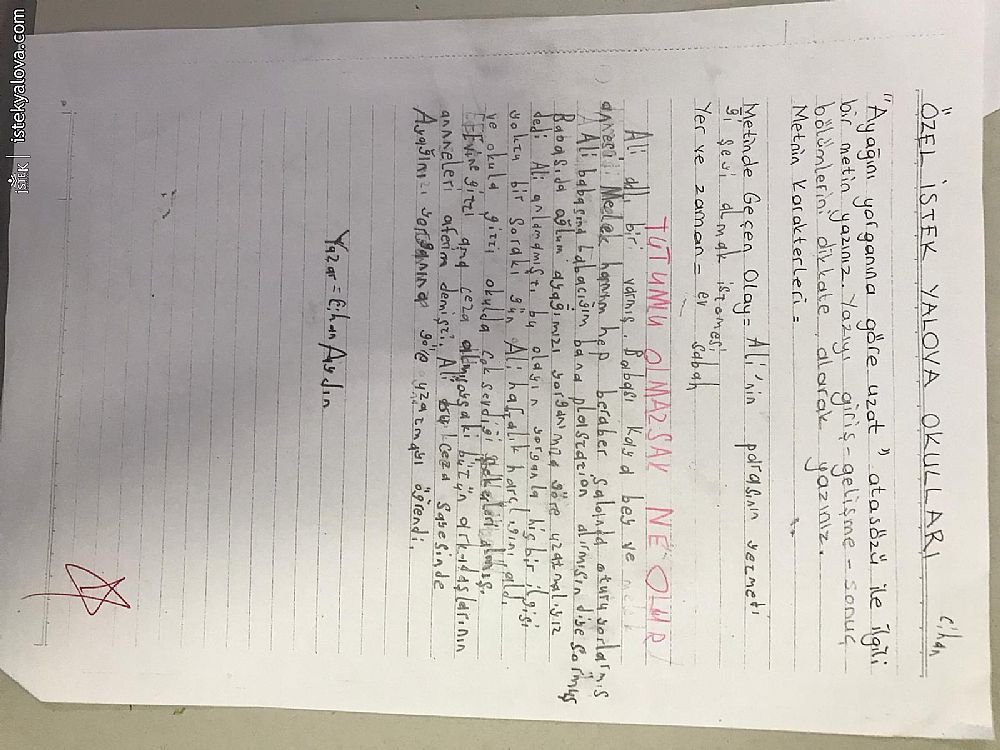 Cihan
ÖZEL İSTEK YALOVA OKULLARI
"Ayağını yorganına göre uzat" atasözü ile ilgili
bir metin yazınız. Yazıyı giriş-gelişme-sonuç
bölümlerini dikkate alarak yazınız.
Metnin Karakterleri=
Metinde Geçen Olay= Ali'nin parasının yezmedi
ği şeyi almak istemesi
Yer ve zaman= ev sabah
TUTUMLU OLMAZSAK NE OLUR?
Ali adlı biri varmış. Babası Kaya bey ve
annesi Melek hanım hep beraber salonda oturuyorlarmış
Ali babasına babacığım bana playstation alırmısın diye sormuş
Babasıda oğlum ayağımızı yorganımıza göre uzatmalıyız
dedi Ali anlamamıştı bu olayın yorganla hiçbir ilgisi
yoktu bir sonraki gün Ali haftalık harçlığını aldı
ve okula gitti okulda çok sevdiği şekerleri almış.
Evine gitti ama ceza almış bütün arkadaşlarının
anneleri aferim demişti. Ali bu ceza sayesinde
Ayağımızı yorganına göre uzatmayı öğrendi.
Yazar=Cihan Aydın
iSTEK | istekyalova.com